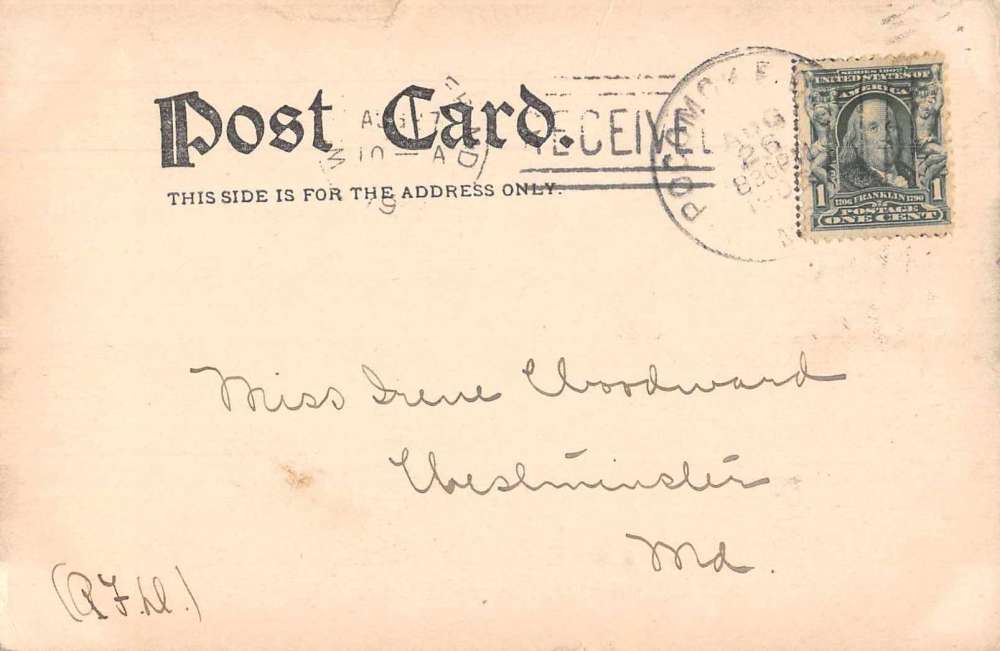 Post Card.
THIS SIDE IS FOR THE ADDRESS ONLY.
AUG 7
10 - A
RECEIVED
POCOMOKE
AUG
26
830PM
SERIES 1902
UNITED STATES OF
AMERICA
1 1
1706 FRANKLIN 1790
POSTAGE
ONE CENT
Miss Irene Woodward
Westminster
Md.